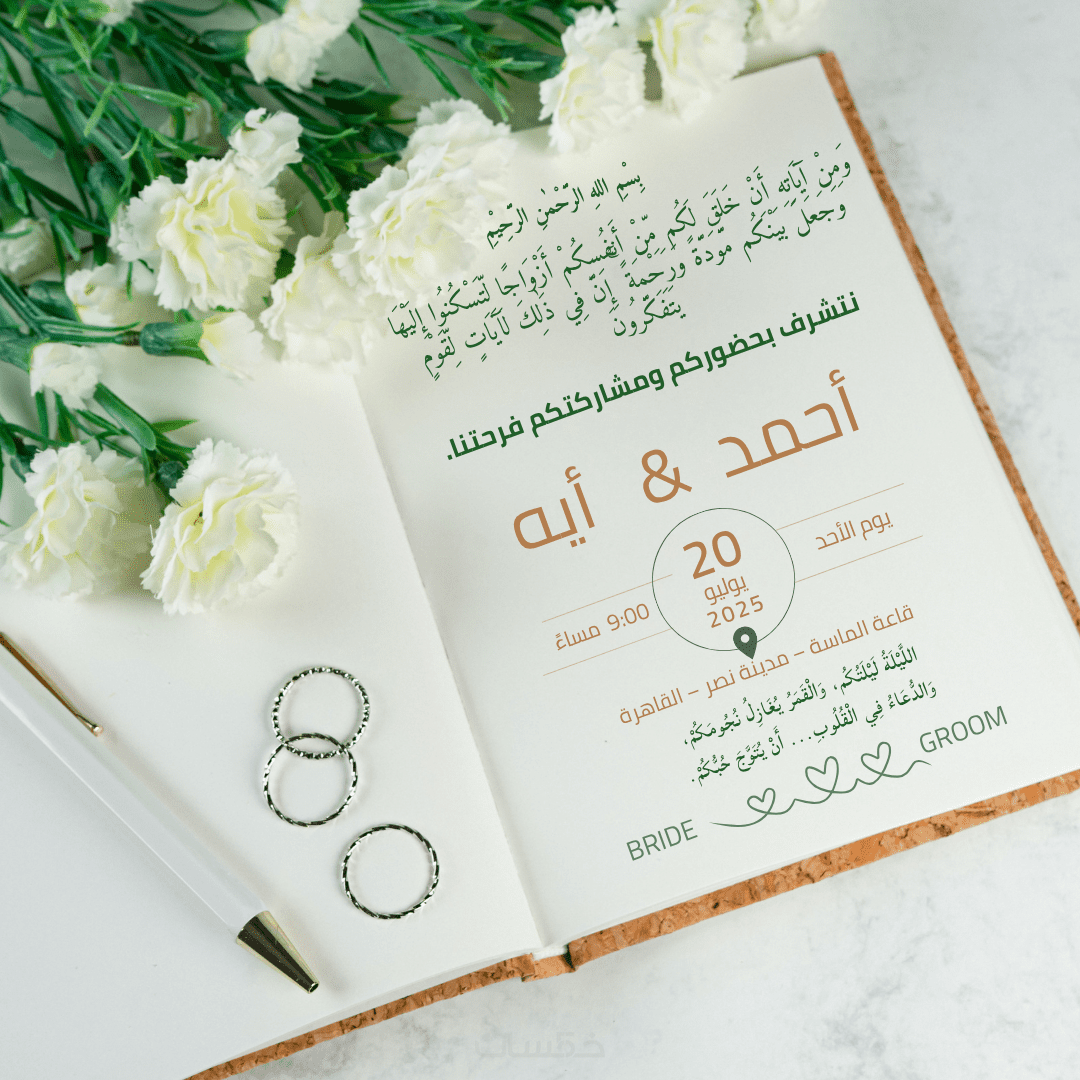 بِسْمِ اللهِ الرَّحْمٰنِ الرَّحِيْمِ
وَمِنْ آيَاتِهِ أَنْ خَلَقَ لَكُم مِّنْ أَنفُسِكُمْ أَزْوَاجًا لِّتَسْكُنُوا إِلَيْهَا
وَجَعَلَ بَيْنَكُم مَّوَدَّةً وَرَحْمَةً إِنَّ فِي ذَٰلِكَ لَآيَاتٍ لِّقَوْمٍ
يَتَفَكَّرُونَ
نتشرف بحضوركم ومشاركتكم فرحتنا.
أحمد & أيه
يوم الأحد
20
يوليو
2025
9:00 مساءً
قاعة الماسة – مدينة نصر – القاهرة
اللَّيْلَةُ لَيْلَتُكُم، وَالْقَمَرُ يُغَازِلُ نُجُومَكُمْ،
وَالدُّعَاءُ فِي الْقُلُوبِ... أَنْ يُتَوَّجَ حُبُّكُمْ.
BRIDE GROOM
خمسات